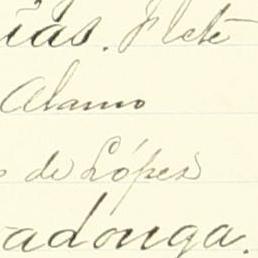 ías. Flete
Alamo
de López
adonga.